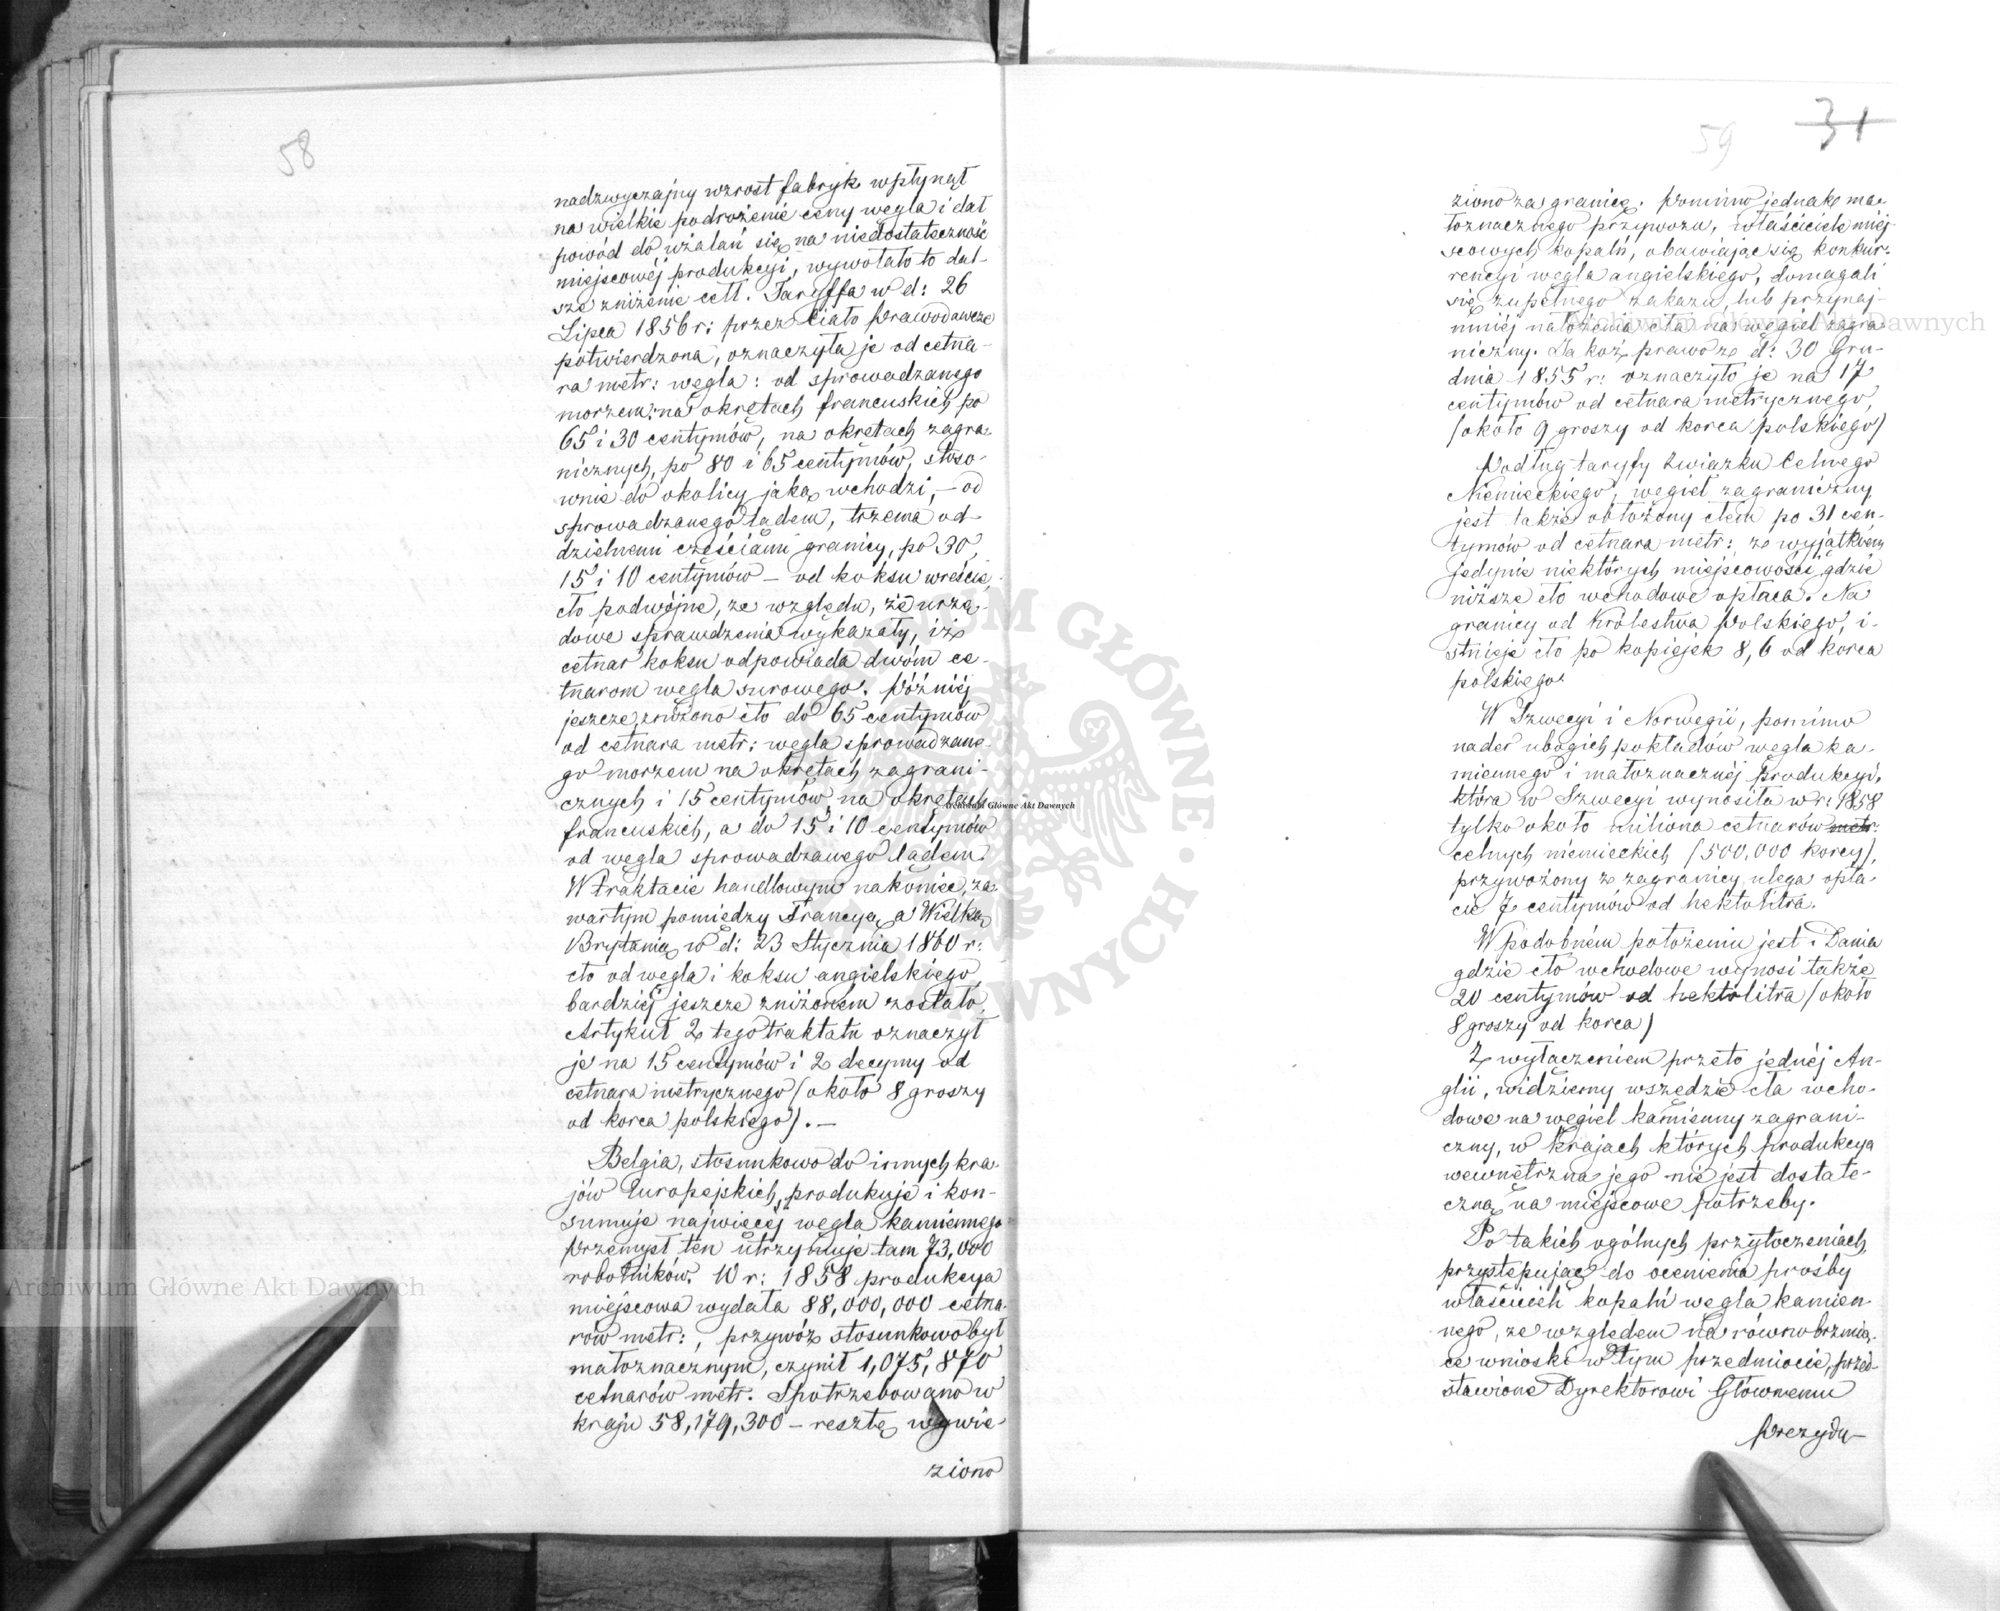 58
nadzwyczajny wzrost fabryk wpłynął
na wielkie podrożenie ceny węgla i dał
powód do użalań się na niedostateczność
miejscowéj produkcyi, wywołało to dal-
sze zniżenie ceł. Taryffa w d: 26
Lipca 1856 r: przez Ciało Prawodawcze
potwierdzona, oznaczyła je od cetna-
ra metr: węgla: od sprowadzanego
morzem: na okrętach francuskich po
65 i 30 centymów, na okrętach zagra-
nicznych, po 80 i 65 centymów, stoso-
wnie do okolicy jaką wchodzi, – od
sprowadzanego lądem, trzema od-
dzielnemi częściami granicy, po 30,
15 i 10 centymów – od koksu wreście
cło podwójne, ze względu, że urzę-
dowe sprawdzenia wykazały, iż
cetnar koksu odpowiada dwóm ce-
tnarom węgla surowego. Późniéj
jeszcze zniżono cło do 65 centymów
od cetnara metr: węgla sprowadzane-
go morzem na okrętach zagrani-
cznych i 15 centymów na okrętach
francuskich, a do 15 i 10 centymów
od węgla sprowadzanego lądem.
W traktacie handlowym nakoniec, za-
wartym pomiędzy Francyą a Wielką
Brytanią w d: 23 Stycznia 1860 r:
cło od węgla i koksu angielskiego
bardziéj jeszcze zniżonem zostało.
Artykuł 2 tego traktatu oznaczył
je na 15 centymów i 2 decymy od
cetnara metrycznego (około 8 groszy
od korca polskiego). –
Belgia, stosunkowo do innych kra-
jów Europejskich, produkuje i kon-
sumuje najwięcéj węgla kamiennego.
Przemysł ten utrzymuje tam 73,000
robotników. W r: 1858 produkcya
miejscowa wydała 88,000,000 cetna-
rów metr:, przywóz stosunkowo był
małoznacznym, czynił 1,075,870
cetnarów metr. Spotrzebowano w
kraju 58,179,300 – resztę wywie-
ziono
59
31
ziono za granicę. Pomimo jednak ma-
łoznacznego przywozu, właściciele miej-
scowych kopalń, obawiając się konkur-
rencyi węgla angielskiego, domagali
się zupełnego zakazu, lub przynaj-
mniéj nałożenia cła na węgiel zagra-
niczny. Jakoż prawo ze d: 30 Gru-
dnia 1855 r: oznaczyło je na 17
centymów od cetnara metrycznego,
(około 9 groszy od korca polskiego)
Podług taryfy Związku Celnego
Niemieckiego, węgiel zagraniczny
jest także obłożony cłem po 31 cen-
tymów od cetnara metr: z wyjątkiem
jedynie niektórych miejscowości, gdzie
niższe cło wchodowe opłaca. Na
granicy od Królestwa Polskiego, i-
stnieje cło po kopiejek 8,6 od korca
polskiego.
W Szwecyi i Norwegii, pomimo
nader ubogich pokładów węgla ka-
miennego i małoznacznéj produkcyi,
która w Szwecyi wynosiła w r: 1858
tylko około miliona cetnarów metr:
celnych niemieckich (500,000 korcy),
przywożony z zagranicy ulega opła-
cie 7 centymów od hektolitra.
W podobném położeniu jest i Dania
gdzie cło wchodowe wynosi także
20 centymów od hektolitra (około
8 groszy od korca)
Z wyłączeniem przeto jednéj An-
glii, widziemy wszędzie cła wcho-
dowe na węgiel kamienny zagrani-
czny, w krajach których produkcya
wewnętrzna jego nie jest dostate-
czną na miejscowe potrzeby.
Po takich ogólnych przytoczeniach,
przystępując do ocenienia prośby
właścicieli kopalń węgla kamien-
nego, ze względem na równobrzmią-
ce wnioski w tym przedmiocie, przed-
stawione Dyrektorowi Głównemu
Prezydu-
Archiwum Główne Akt Dawnych
Archiwum Główne Akt Dawnych
Archiwum Główne Akt Dawnych